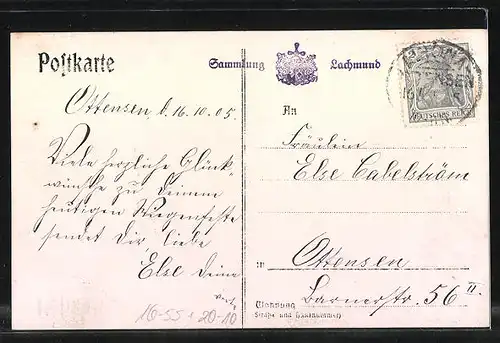 Postkarte
Sammlung Lachmund
Ottensen, d. 16.10.05
Viele herzliche Glück-
wünsche zu Deinem
heutigen Wiegenfeste
sendet Dir liebe
Else Deine
16-55 20-10
DEUTSCHES REICH
An
Fräulein
Else Cabelström
in Ottensen
Wohnung Barnerstr. 56 II.
Straße und Hausnummer